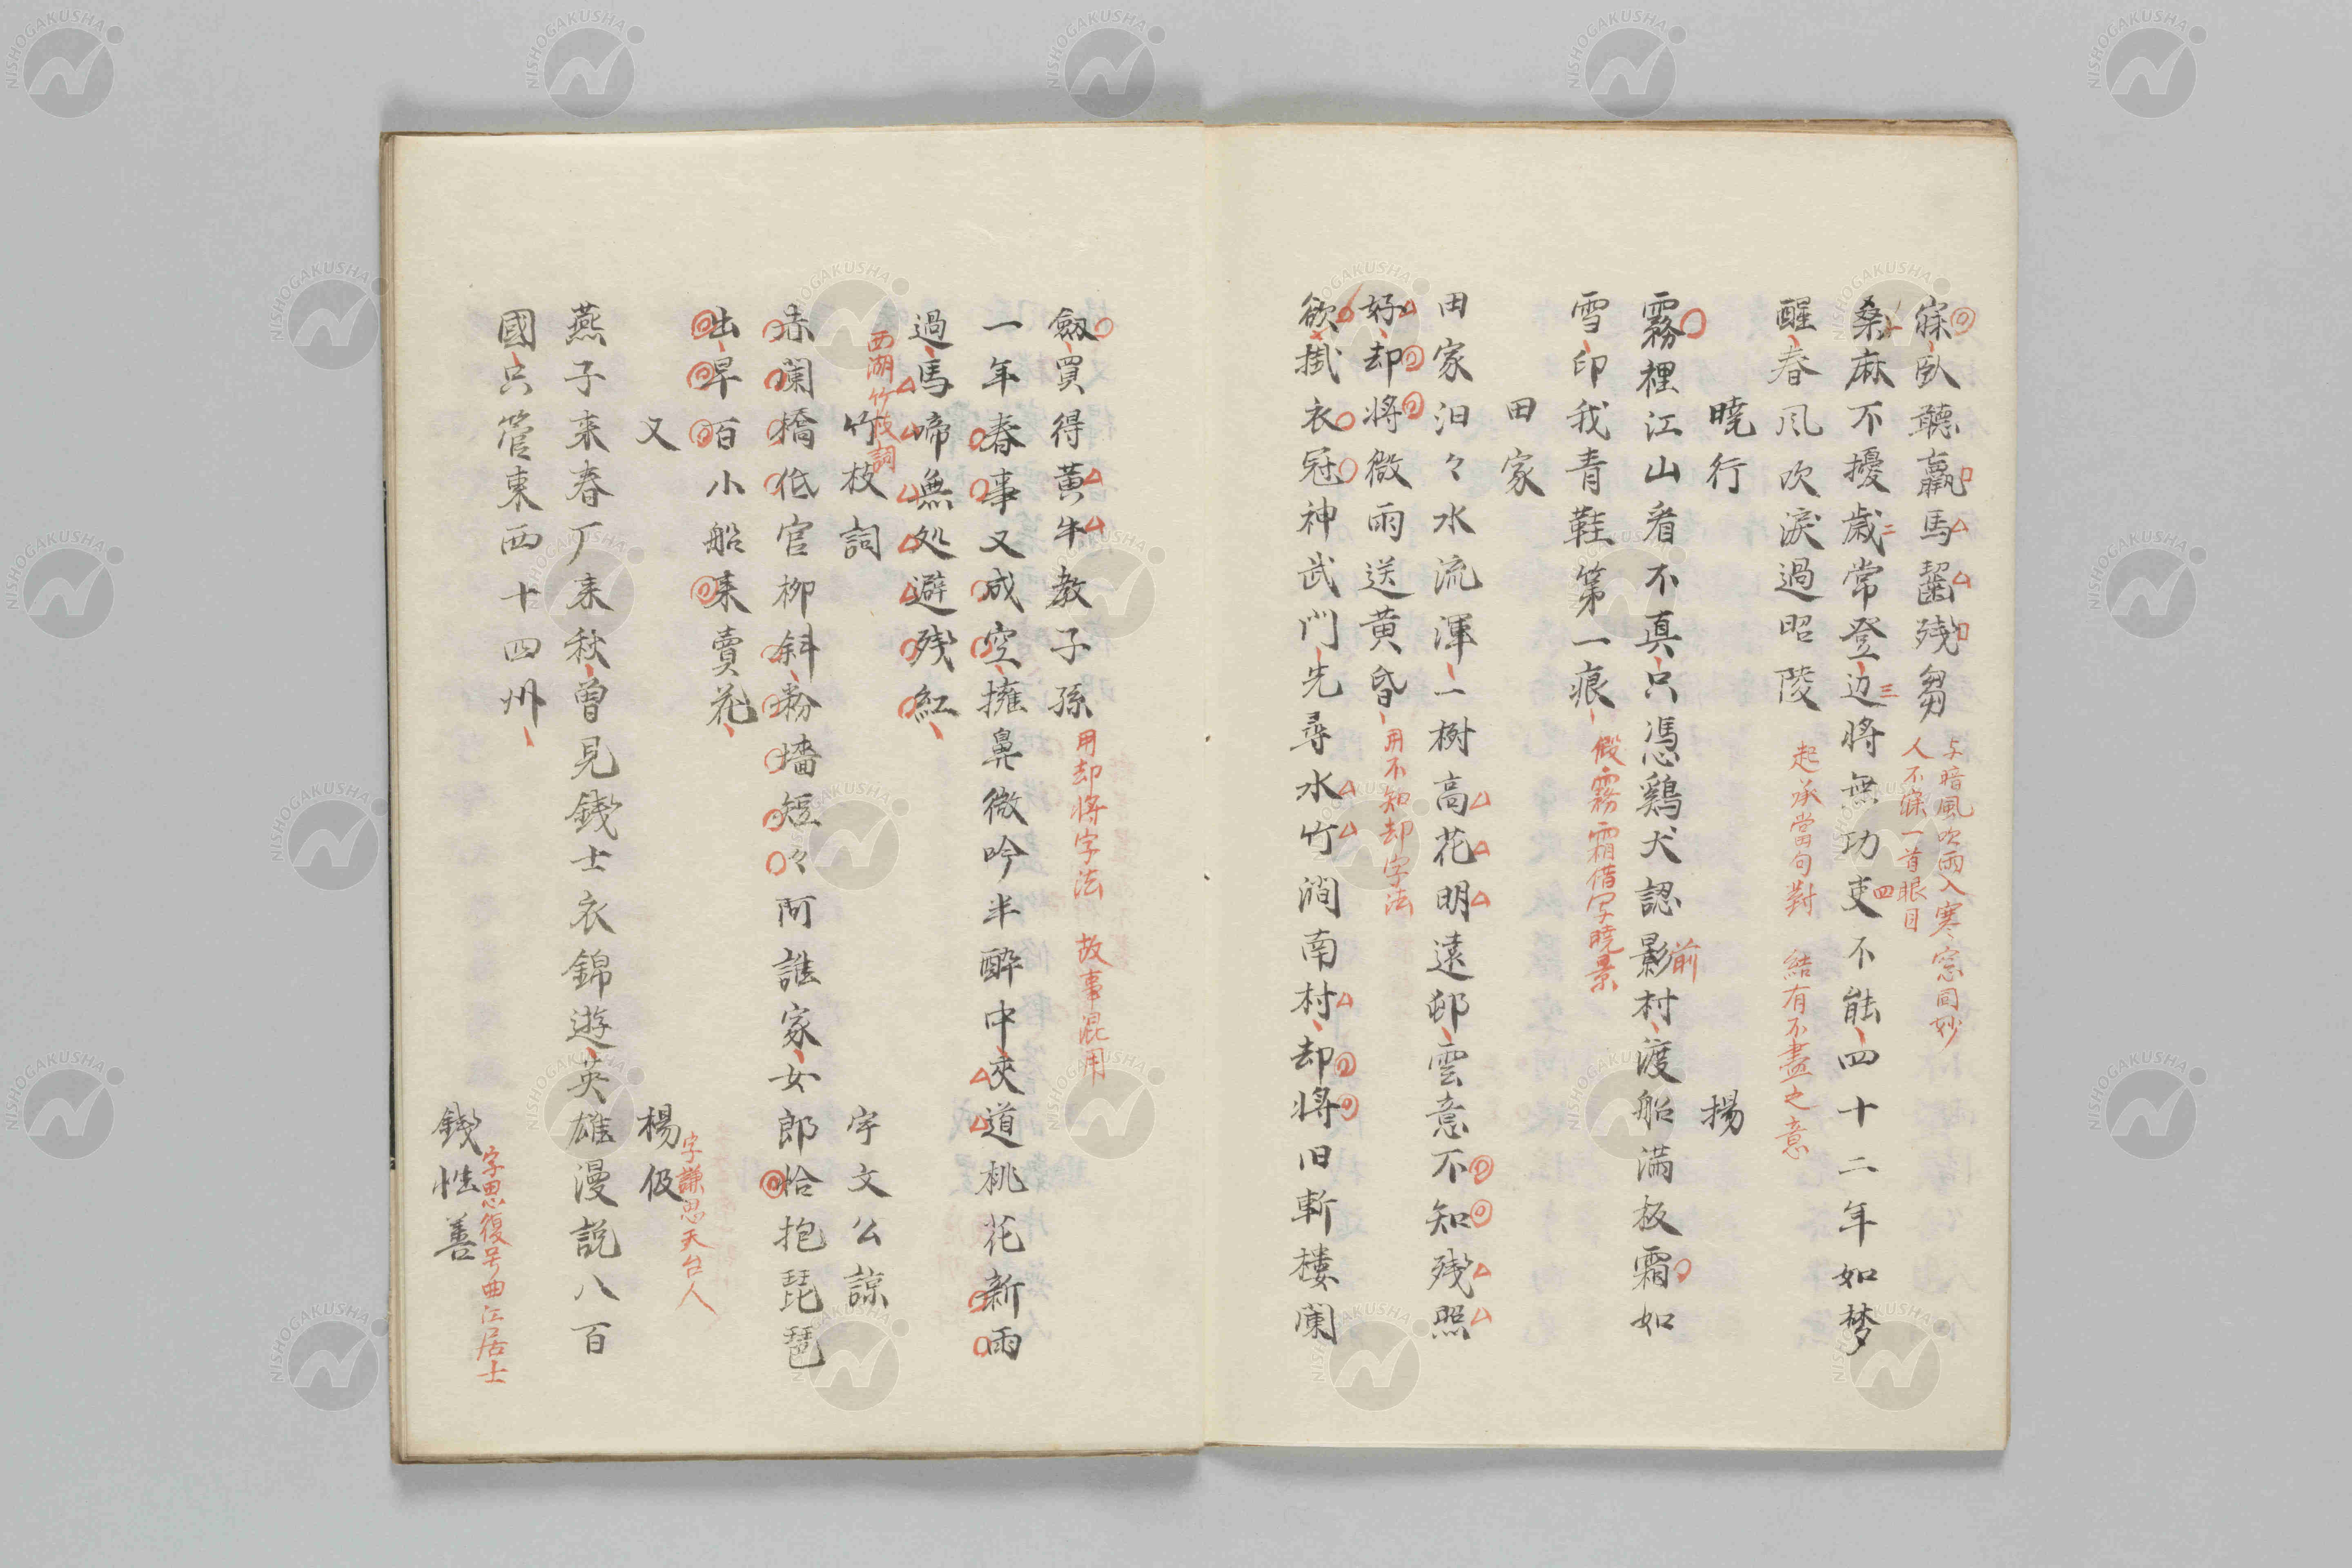 寐臥聽羸馬齧殘芻
与暗風吹雨入寒窓同妙
人不寐一首眼目
桑麻不擾歳常登边将無功吏不能四十二年如梦
二
三
四
醒春风吹淚過昭陵
起承當句對 結有不盡之意
暁行 楊
霧裡江山看不真只憑鷄犬認影村渡船满板霜如
前
雪印我青鞋第一痕
假霧霜借写曉景
田家
田家汨々水流渾一樹高花明遠邨雲意不知残照
好却将微雨送黄昏
用不知却字法
欲掛衣冠神武門先尋水竹澗南村却将旧斬樓闌
劔買得黄牛教子孫
用却将字法 故事混用
一年春事又成空擁鼻微吟半酔中夾道桃花新雨
過馬啼無処避残紅
竹枝詞 宇文公諒
西湖竹枝詞
赤闌橋低官柳斜粉墻短々阿誰家女郎恰抱琵琶
出早百小船来賣花
又 楊伋
字謙思天台人
燕子来春厂来秋曽見銭士衣錦遊英雄漫説八百
國只管東西十四州
銭惟善
字思復号曲江居士
NISHOGAKUSHA